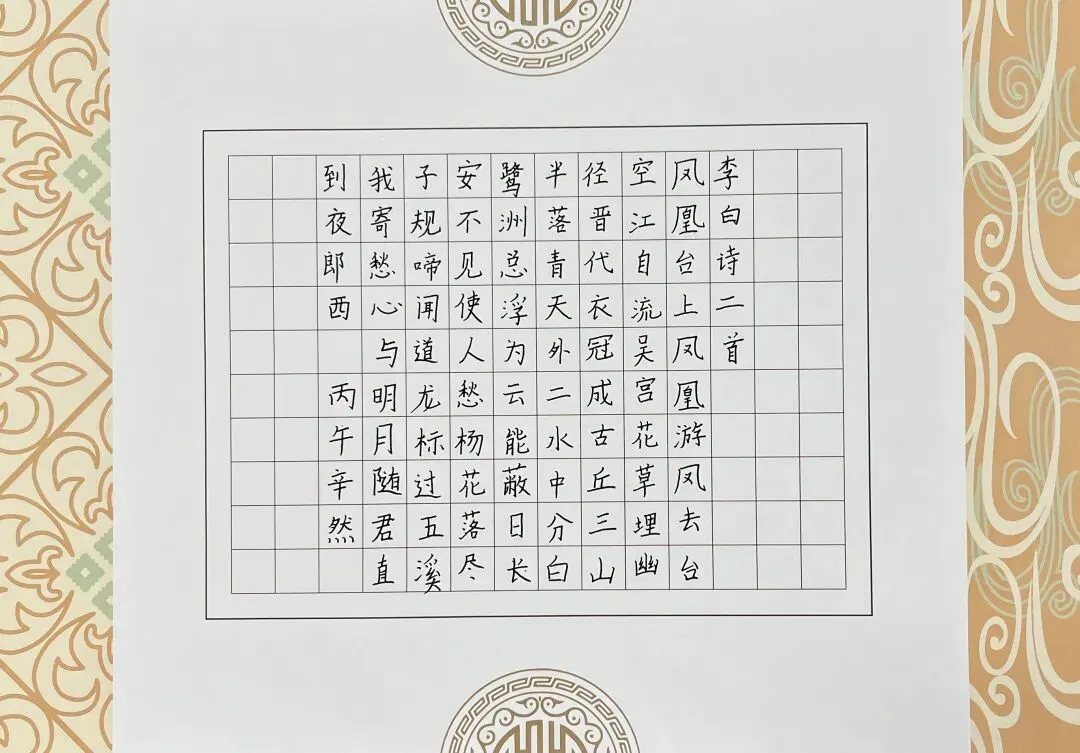 李白诗二首
凤凰台上凤凰游凤去台
空江自流吴宫花草埋幽
径晋代衣冠成古丘三山
半落青天外二水中分白
鹭洲总浮为云能蔽日长
安不见使人愁杨花落尽
子规啼闻道龙标过五溪
我寄愁心与明月随君直
到夜郎西 丙午辛然